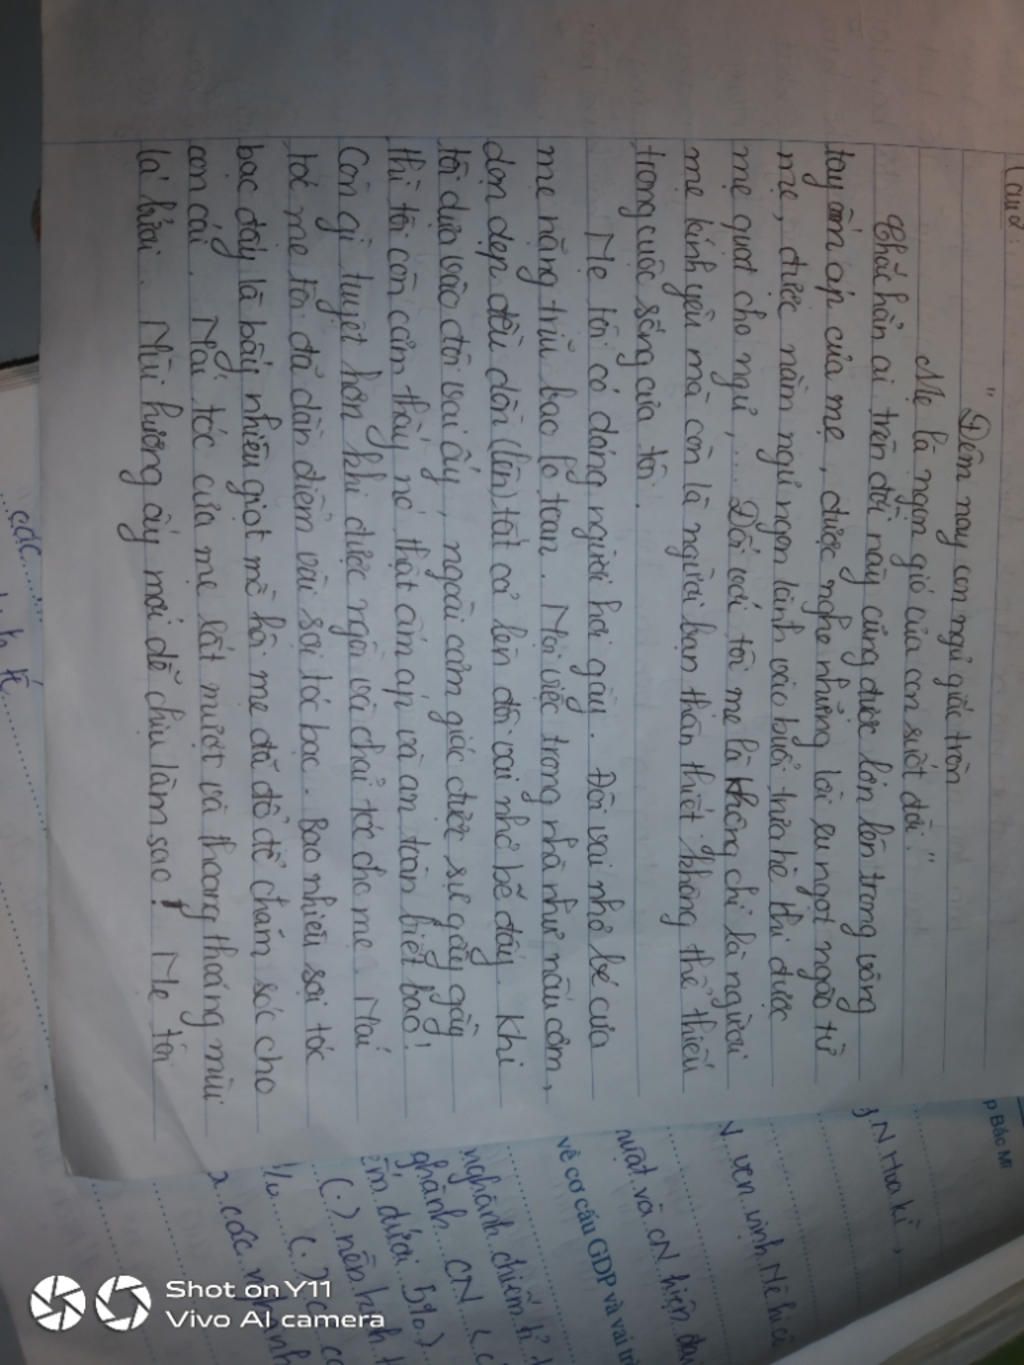 Câu 2:
"Đêm nay con ngủ giấc tròn
Mẹ là ngọn gió của con suốt đời."
Chắc hẳn ai trên đời này cũng được lớn lên trong vòng
tay ấm áp của mẹ, được nghe những lời ru ngọt ngào từ
mẹ, được nằm ngủ ngon lành vào buổi trưa hè khi được
mẹ quạt cho ngủ,... Đối với tôi mẹ là không chỉ là người
mẹ kính yêu mà còn là người bạn thân thiết không thể thiếu
trong cuộc sống của tôi.
Mẹ tôi có dáng người hơi gầy. Đôi vai nhỏ bé của
mẹ nặng trĩu bao lo toan. Mỗi việc trong nhà như nấu cơm,
dọn dẹp đều dồn (lên) tất cả lên đôi vai nhỏ bé đấy. Khi
tôi dựa vào đôi vai ấy, ngoài cảm giác được sự gầy gầy
thì tôi còn cảm thấy nó thật ấm áp và an toàn biết bao!
Còn gì tuyệt hơn khi được ngồi và chải tóc cho mẹ. Mái
tóc mẹ tôi đã dần điểm vài sợi tóc bạc. Bao nhiêu sợi tóc
bạc đấy là bấy nhiêu giọt mồ hôi mẹ đã đổ để chăm sóc cho
con cái. Mái tóc của mẹ lất mượt và thoang thoảng mùi
lá bưởi. Mùi hương ấy mới dễ chịu làm sao! Mẹ tôi
p Bắc Mĩ
N Hoa kì,
ven vịnh Mê hi cô
và CN hiện đại
về cơ cấu GDP và vai
nghành chiếm tỉ
ghành CN
dưới 5%.)
(.) nền kinh t
(.)
2. các
các